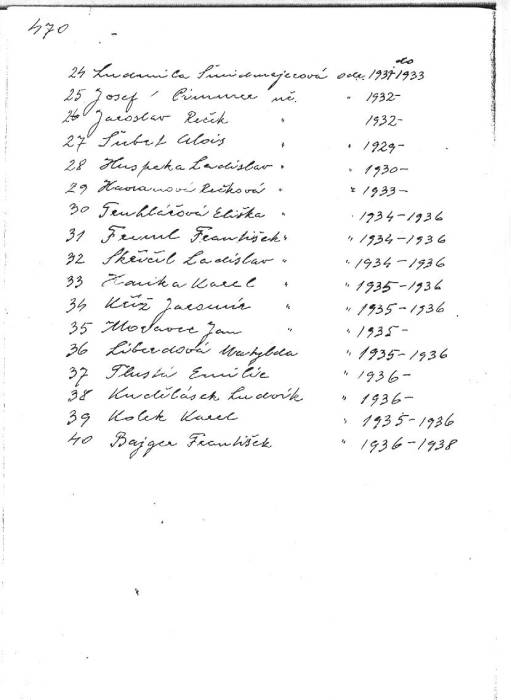 470
do
24 Ludmila Šmidmajerová od r. 1931 1933
25 Josef Cimmer uč. " 1932-
26 Jaroslav Rečik " 1932-
27 Šubrt Alois " " 1929-
28 Huspeka Ladislav " " 1930-
29 Havranová Rečková " " 1933-
30 Truhlářová Eliška " " 1934-1936
31 Freml František " " 1934-1936
32 Skřčil Ladislav " " 1934-1936
33 Hanika Karel " " 1935-1936
34 Kříž Jaromír " " 1935-1936
35 Moravec Jan " " 1935-
36 Liberdová Matylda " 1935-1936
37 Tlustá Emilie " 1936-
38 Kudělásek Ludvík " 1936-
39 Kolek Karel " 1935-1936
40 Bajger František " 1936-1938